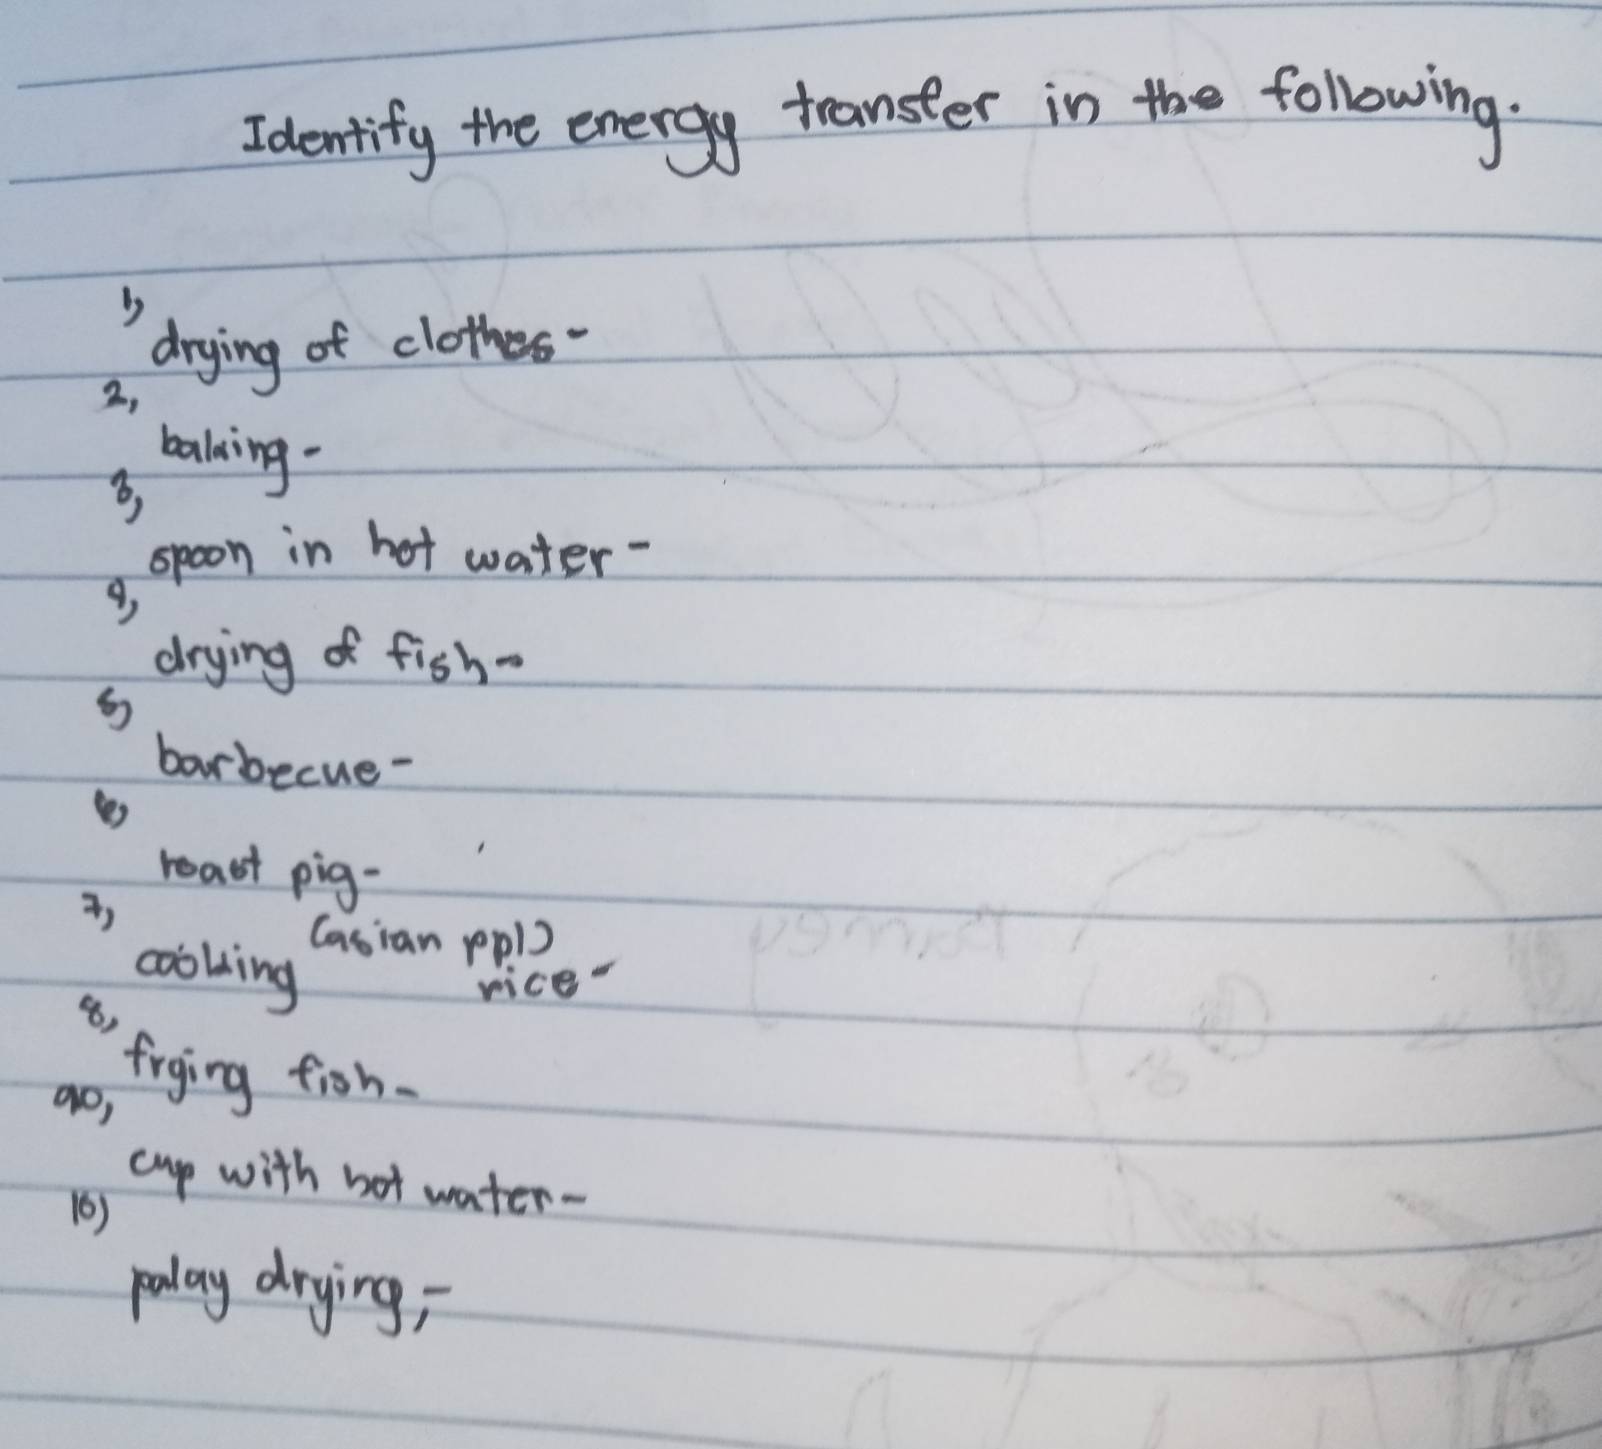 Identify the energy transfer in the following.
1)
drying of clothes-
2,
baking-
3,
spoon in hot water-
4,
drying of fish-
5)
barbecue-
6)
roast pig-
7,
(asian ppl)
cooking rice-
8,
frying fish-
9,
cup with hot water-
10)
palay drying,-